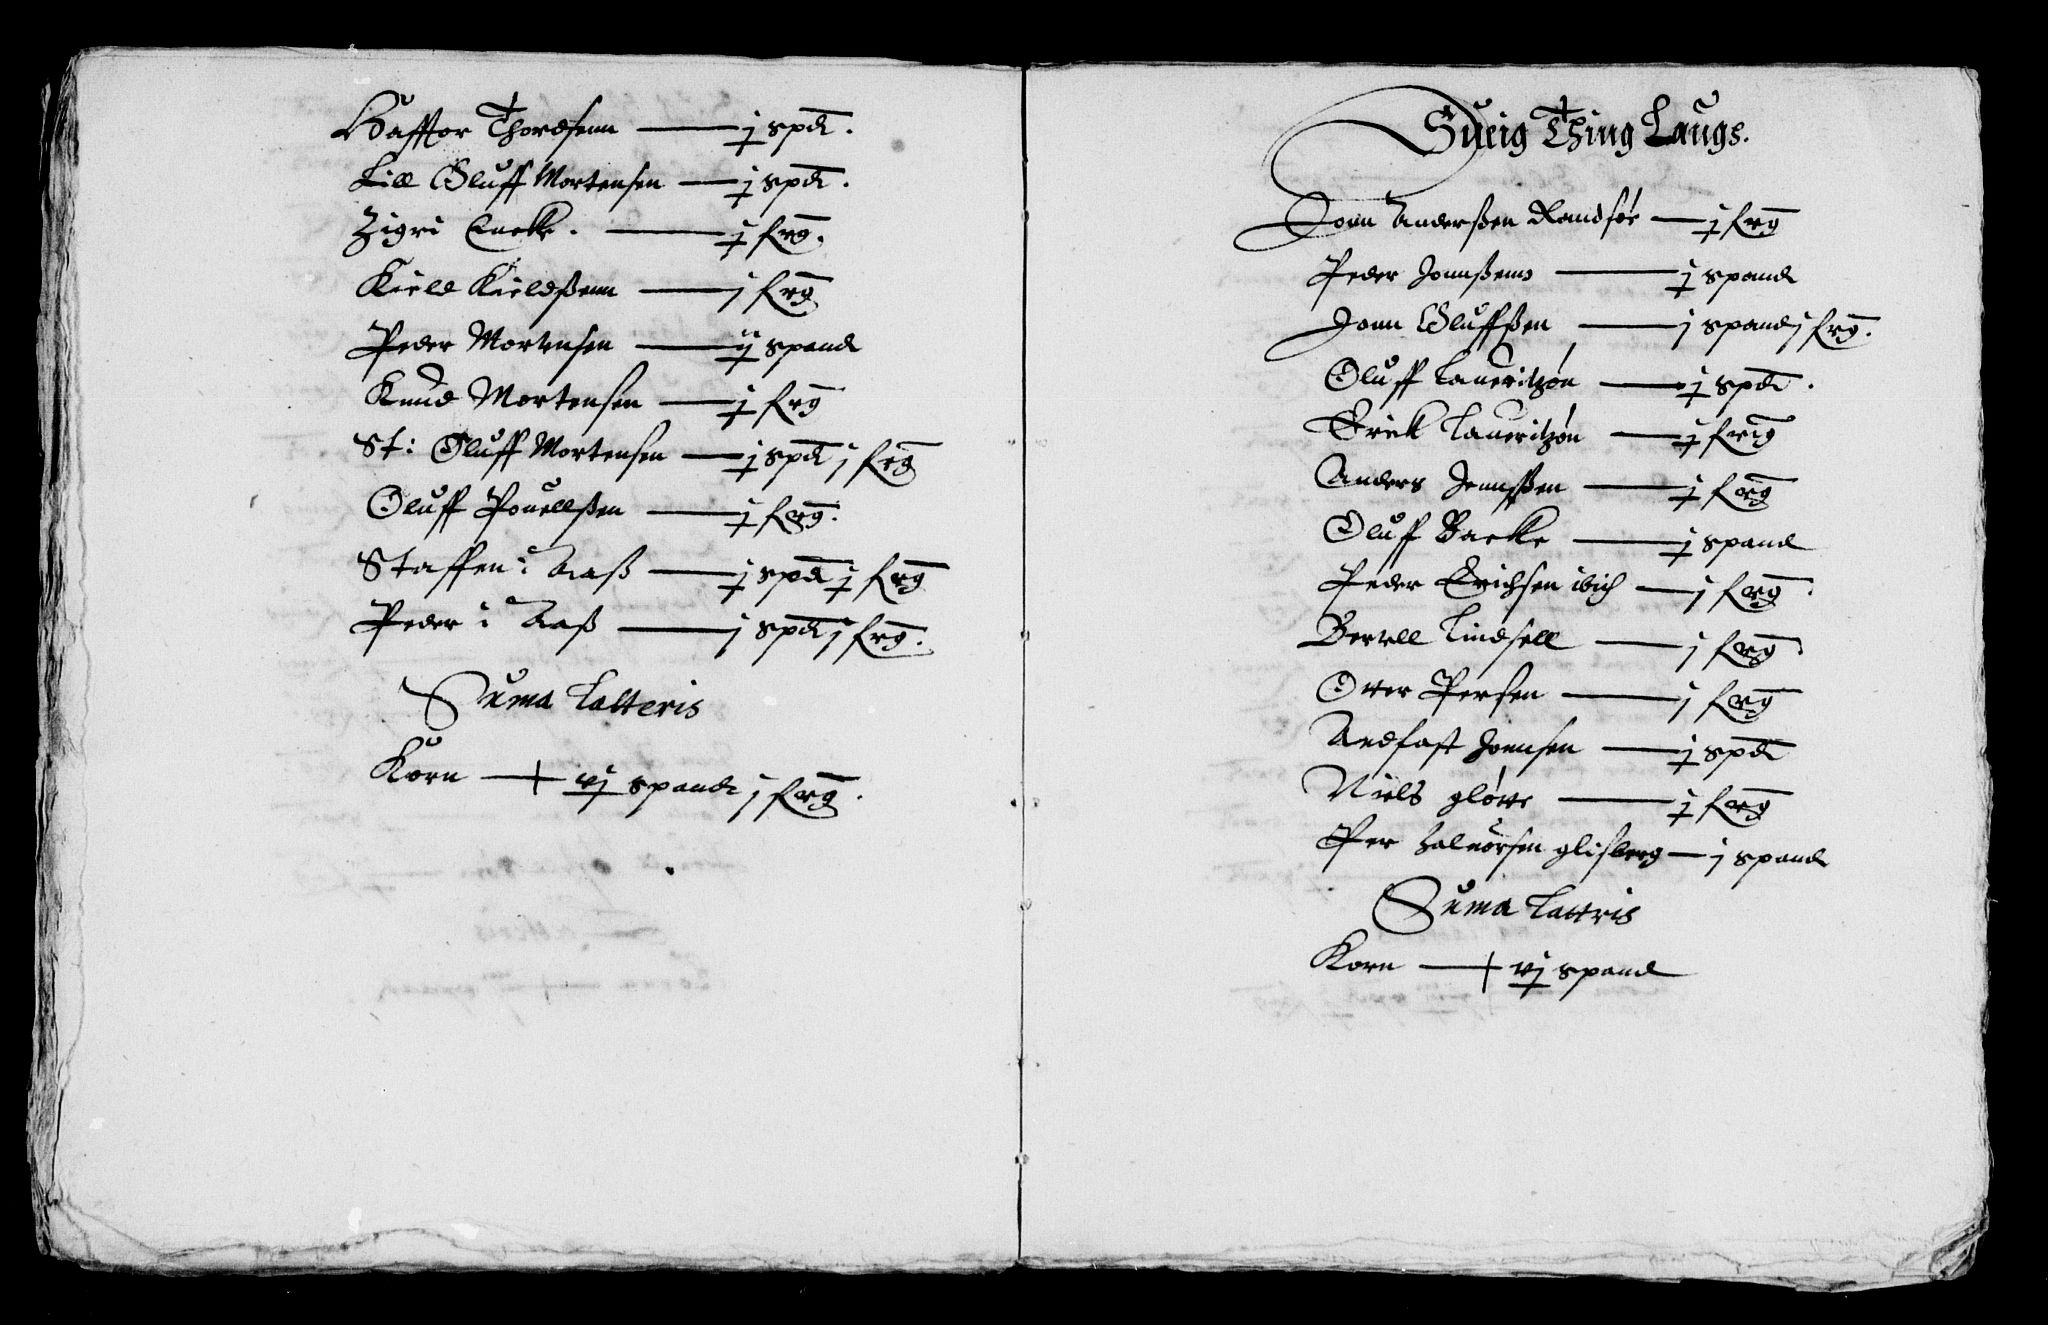 Hafftor Thordsenn — j spd.
Lill Oluff Mortensen — j spd.
Zigri — j frg.
Kield Kieldßenn — j frg
Peder Mortensen — ij spand
Knud Mortensen — j frg
St: Oluff Mortensen — j spd j frg
Oluff Pouellßen — j frg.
Staffen i Aaß — j spd j frg
Peder i Aaß — j spd j frg.
Suma Latteris
Korn — vj spand j frg.
Sueig Thing Laugs.
Jonn Anderßen Randsör — j frg
Peder Jonnßenn — j spand
Jonn Oluffßen — j spand j frg.
Oluff Lauritzøn — j spd.
Erick Lauritzøn — j frig
Anders Jennßen — j frg
Oluff Backe — j spand
Peder Erichsen — j frg.
Bertell Lindsell — j frg.
Otter Persen — j frg
Andfast Jonnsen — j spd
Niels gløtte — j frg
Per Haluorsen glisberg — j spand
Suma Latteris
Korn — vj spand